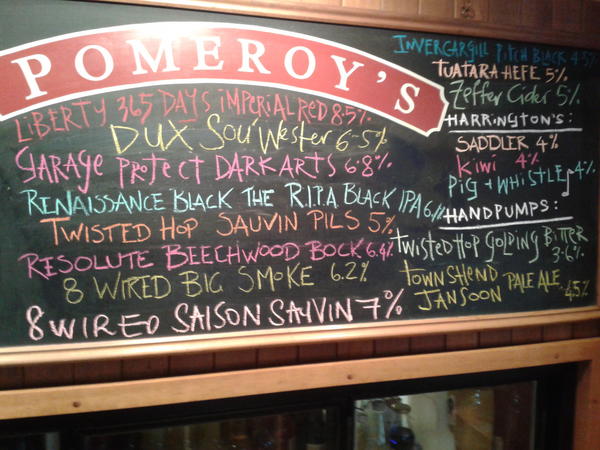 POMEROY'S
LIBERTY 365 DAYS IMPERIAL RED 8.5%
DUX SOU'WESTER 6-5%
GARAGE PROJECT DARK ARTS 6.8%
RENAISSANCE BLACK THE R.I.P.A BLACK IPA
TWISTED HOP SAUVIN PILS 5%
RESOLUTE BEECHWOOD BOCK 6.4%
8 WIRED BIG SMOKE 6.2%
8 WIRED SAISON SAUVIN 7%
INVERCARGILL PITCH BLACK 4.5%
TUATARA HEFE 5%
Zeffer Cider 5%
HARRINGTON'S:
SADDLER 4%
KIWI 4%
PIG + WHISTLE 4%
HANDPUMPS:
TWISTED HOP GOLDING BITTER
3.6%
TOWNSHEND
JANSOON PALE ALE 4.5%